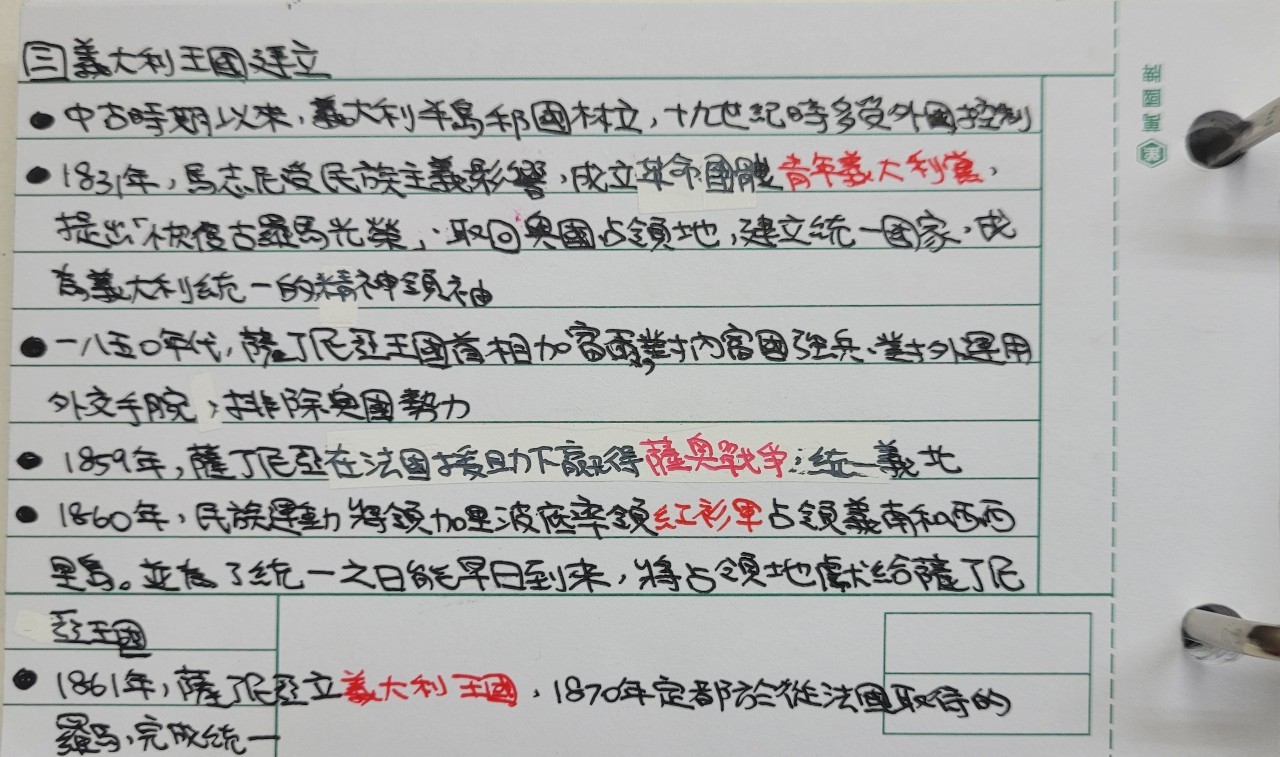 三義大利王國建立
●中古時期以來,義大利半島邦國林立,十九世紀時多受外國控制
●1831年,馬志尼受民族主義影響,成立革命國體青年義大利黨,
提出「恢復古羅馬光榮」,取回奧國占領地,建立統一國家,成
為義大利統一的精神領袖
●一八五〇年代,薩丁尼亞王國首相加富爾,對內富國強兵、對外運用
外交手腕,排除奧國勢力
●1859年,薩丁尼亞在法國援助下贏得薩奧戰爭;統一義北
●1860年,民族運動將領加里波底率領紅衫軍占領義南和西西
里島。並為了統一之日能早日到來,將占領地獻給薩丁尼
亞王國
●1861年,薩丁尼亞立義大利王國,1870年定都於從法國取得的
羅馬,完成統一
萬國牌